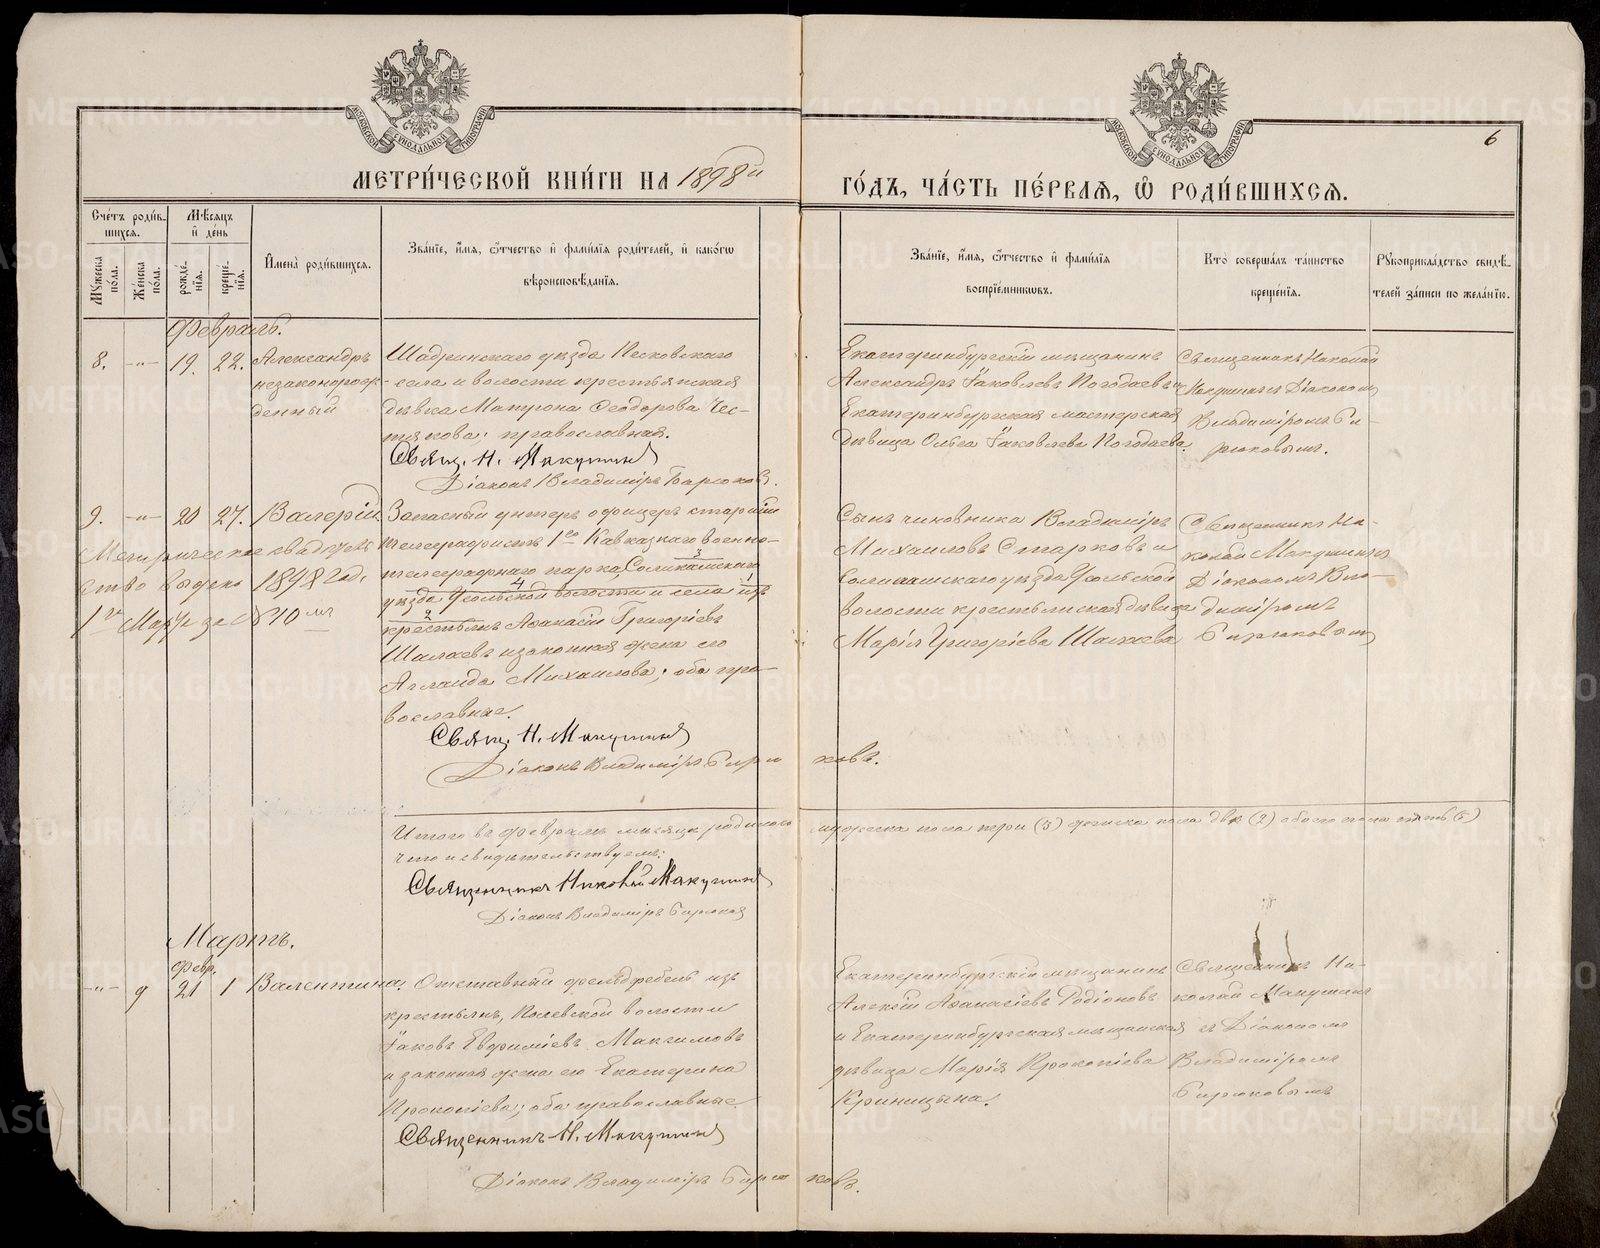 МОСКОВСКОЙ СѴНОДАЛЬНОЙ ТИПОГРАФІИ
МОСКОВСКОЙ СѴНОДАЛЬНОЙ ТИПОГРАФІИ
6
МЕТРИ́ЧЕСКОЙ КНИ́ГИ НА 1898й ГО́ДЪ, ЧА́СТЬ ПЕ́РВАЯ, Ѡ РОДИ́ВШИХСЯ.
Сче́тъ роди́в-
шихся.
Мѣ́сяцъ
и҆ де́нь
Мꙋ́жеска по́ла.
Же́нска по́ла.
рожде́-
нїѧ.
креще́-
нїѧ.
И҆мена̀ роди́вшихся.
Зва́нїе, и҆́мѧ, ѻ҆́тчество и҆ фами́лїѧ роди́телей, и҆ како́гѡ
вѣроисповѣ́данїѧ.
Зва́нїе, и҆́мѧ, ѻ҆́тчество и҆ фами́лїѧ
воспрїе́мникѡвъ.
Кто̀ соверша́лъ та́инство
креще́нїѧ.
Рꙋкоприкла́дство свидѣ́-
телей за́писи по жела́нїю.
Февраль.
8. -„- 19. 22. Александръ
незаконорож-
денный
Шадринскаго уѣзда Песковскаго
села и волости крестьянская
дѣвка Матрона Ѳеодорова Чес-
тякова; православная.
Свящ. Н. Макушинъ
Діаконъ Владиміръ Бирюковъ.
Екатеринбургскій мѣщанинъ
Александръ Іаковлевъ Погодаевъ и
Екатеринбургская мастерская
дѣвица Ольга Іаковлева Погодаева.
Священникъ Николай
Макушинъ съ Діакономъ
Владиміромъ Би-
рюковымъ.
9. -„- 20 27. Валерій
Метрическое свидѣтель-
ство выдано 1898 года
1го Марта за № 10 мъ
Запасный унтеръ офицеръ старшій
телеграфистъ 1го Кавказскаго военно-
телеграфнаго парка, Соликамскаго
уѣзда Усольской волости и села изъ
3
4
1
2
крестьянъ Аѳанасій Григоріевъ
Шалаевъ и законная жена его
Аглаида Михаилова; оба пра-
вославные.
Свящ. Н. Макушинъ
Діаконъ Владиміръ Бирюковъ.
Сынъ чиновника Владиміръ
Михаиловъ Старковъ и
Соликамскаго уѣзда Усольской
волости крестьянская дѣвица
Марія Григоріева Шалаева
Священникъ Ни-
колай Макушинъ
Діакономъ Вла-
диміромъ
Бирюковымъ
Итого въ Февралѣ мѣсяцѣ родилось мужеска пола три (3) женска пола два (2) обоего пола пять (5)
Что и свидѣтельствуемъ:
Священникъ Николай Макушинъ
Діаконъ Владиміръ Бирюков
Мартъ.
Февр.
-„- 9 21 1 Валентина.
Отставный фельдфебель изъ
крестьянъ, Полевской волости
Іаковъ Евфиміевъ Максимовъ
и законная жена его Екатерина
Прокопіева; оба православные.
Священникъ Н. Макушинъ
Діаконъ Владиміръ Бирюковъ.
Екатеринбургскій мѣщанинъ
Алексій Аѳанасіевъ Родіоновъ
и Екатеринбургская мѣщанская
дѣвица Марія Прокопіева
Криницына.
Священникъ Ни-
колай Макушинъ
съ Діакономъ
Владиміромъ
Бирюковымъ
METRIKI.GASO-URAL.RU